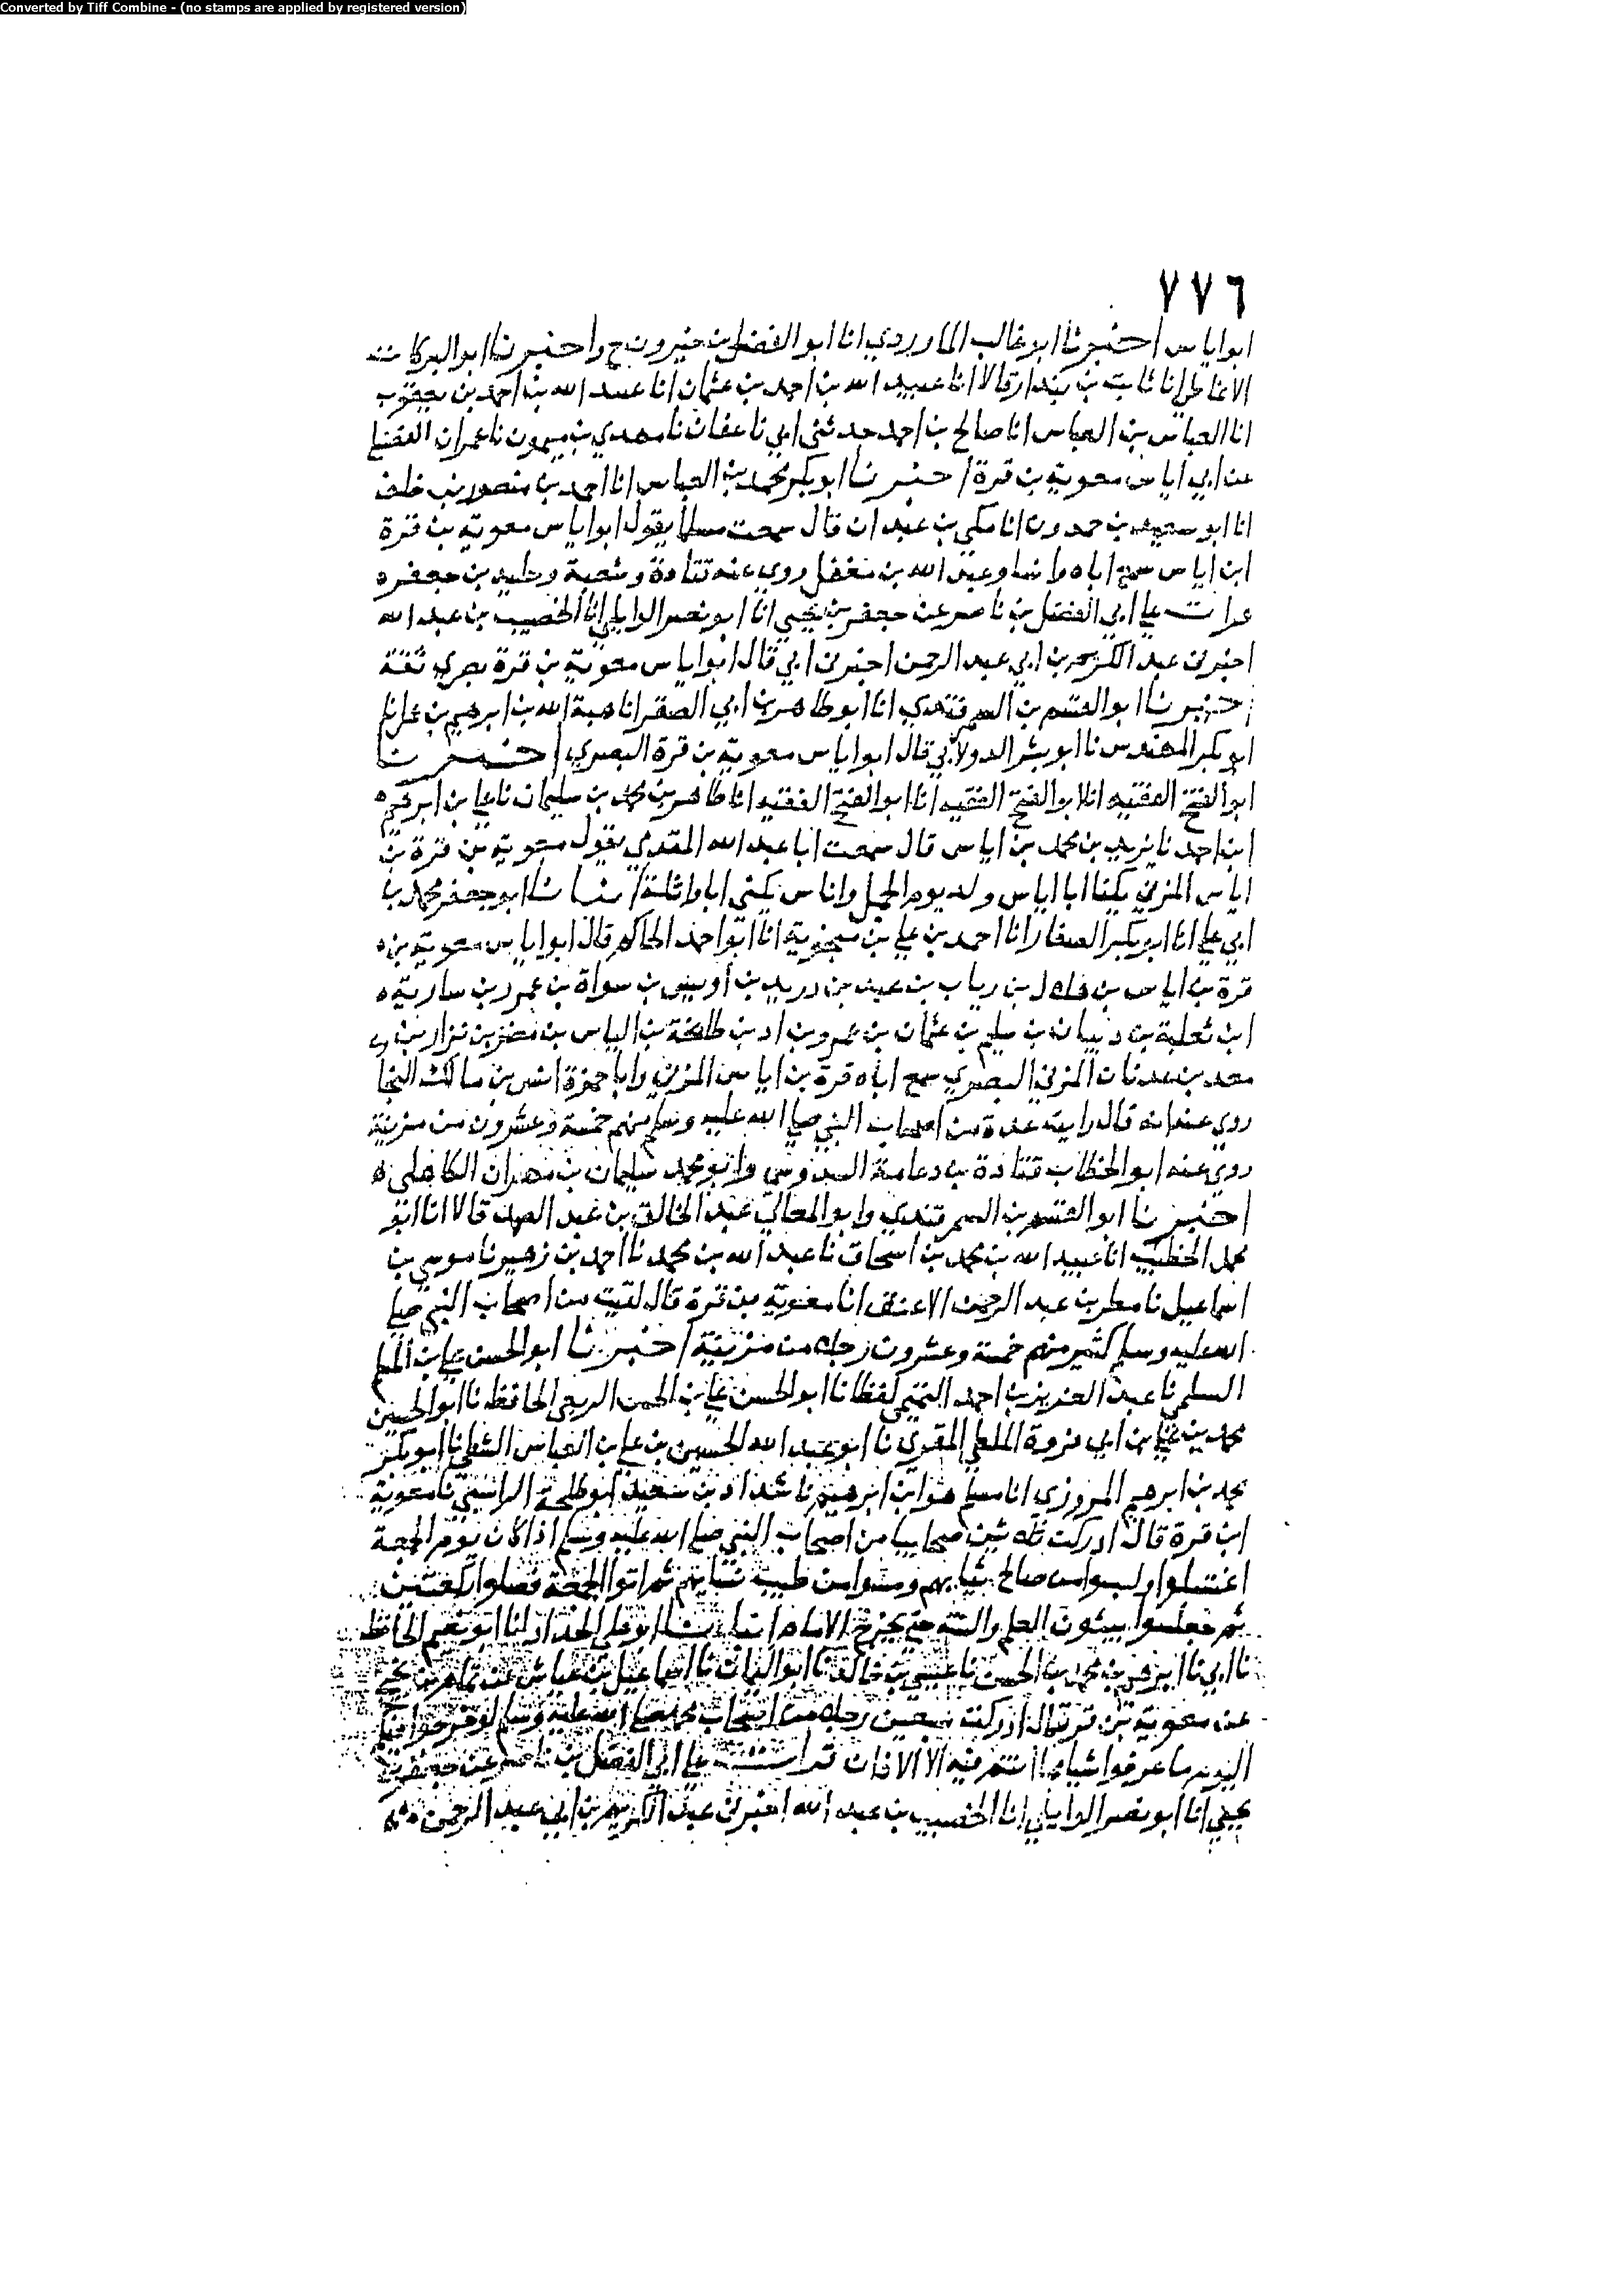 Converted by Tiff Combine - (no stamps are applied by registered version)
٧٧٦
ابو اياس اخبرنا ابو غالب الماوردي انا ابو الفضل بن خيرون ح واخبرنا ابو البركات
الانماطي انا ثابت بن بندار قالا انا عبيد الله بن احمد بن عثمان انا عبيد الله بن احمد بن يعقوب
انا العباس بن العباس انا صالح بن احمد حدثني ابي نا عفان نا مهدي بن ميمون نا عمران القصير
عن ابي اياس معوية بن قرة اخبرنا ابو بكر محمد بن العباس انا احمد بن منصور بن خلف
انا ابو سعيد بن حمدون انا مكي بن عبدان قال سمعت مسلما يقول ابو اياس معوية بن قرة
ابن اياس سمع اباه وانسا وعبد الله بن مغفل روى عنه قتادة وشعبة وخليد بن جعفر ه
قرات علي ابي الفضل بن ناصر عن جعفر بن يحيى انا ابو نصر الوايلي انا الخصيب بن عبد الله
اخبرني عبد الكريم بن ابي عبد الرحمن اخبرني ابي قال ابو اياس معوية بن قرة بصري ثقة
اخبرنا ابو القسم بن السمرقندي انا ابو طاهر بن ابي الصقر انا هبة الله بن ابرهيم بن عمر انا
ابو بكر المهندس نا ابو بشر الدولابي قال ابو اياس معوية بن قرة البصري اخبرنا
ابو الفتح الفقيه انا ابو الفتح الفقيه انا ابو الفتح الفقيه انا طاهر بن محمد بن سليمان نا علي بن ابرهيم ه
ابن احمد نا يزيد بن محمد بن اياس قال سمعت ابا عبد الله المقدمي يقول معوية بن قرة بن
اياس المزني يكنا ابا اياس ولد يوم الجمل واياس يكنى ابا واثلة انبانا ابو جعفر محمد بن
ابي علي انا ابو بكر الصفار انا احمد بن علي بن منجويه انا ابو احمد الحاكم قال ابو اياس معوية بن ه
قرة بن اياس بن هلال بن رياب بن عبيد بن دريد بن اوس بن سواة بن عمرو بن سارية ه
ابن ثعلبة بن ذبيان بن سليم بن عثمان بن عمرو بن اد بن طابخة بن الياس بن مضر بن نزار بن
معد بن عدنان المزني البصري سمع اباه قرة بن اياس المزني وابا حمزة انس بن مالك النجا
روى عنه انه قال رايت عدة من اصحاب النبي صلي الله عليه وسلم منهم خمسة وعشرون من مزينة
روى عنه ابو الخطاب قتادة بن دعامة السدوسي وابو محمد سليمان بن مهران الكاهلي ه
اخبرنا ابو القسم بن السمرقندي وابو المعالي عبد الخالق بن عبد الصمد قالا انا ابو
محمد الخطيب انا عبيد الله بن محمد بن اسحاق نا عبد الله بن محمد نا احمد بن زهير نا موسى بن
اسماعيل نا مطر بن عبد الرحمن الاعنق انا معوية بن قرة قال لقيت من اصحاب النبي صلي
الله عليه وسلم كثير منهم خمسة وعشرون رجلا من مزينة اخبرنا ابو الحسن علي بن المسلم
السلمي نا عبد العزيز بن احمد التميمي لفظا نا ابو الحسن علي بن الحسن الربعي الحافظ نا ابو الحسين
محمد بن علي بن ابي فروة الملطي المقري نا ابو عبد الله الحسين بن علي بن العباس الشطي نا ابو بكر
محمد بن ابرهيم المروزي انا مسلم هو ابن ابرهيم نا شداد بن سعيد ابو طلحة الراسبي نا معوية
ابن قرة قال ادركت ثلاثين صحابيا من اصحاب النبي صلي الله عليه وسلم اذا كان يوم الجمعة
اغتسلوا ولبسوا من صالح ثيابهم ومسوا من طيب نسايهم ثم اتوا الجمعة فصلوا ركعتين
ثم جلسوا يبثون العلم والسنة حتي يخرج الامام انبانا ابو علي الحداد انا ابو نعيم الحافظ
نا ابي نا ابرهيم بن محمد بن الحسن نا عيسى بن خالد نا ابو اليمان نا اسماعيل بن عياش عن تمام بن نجيح
عن معوية بن قرة قال ادركت سبعين رجلا من اصحاب محمد صلي الله عليه وسلم لو خرجوا فيكم
اليوم ما عرفوا شيا مما انتم فيه الا الاذان قرات علي ابي الفضل بن ناصر عن جعفر بن
يحيى انا ابو نصر الوايلي انا الخصيب بن عبد الله اخبرني عبد الكريم بن ابي عبد الرحمن ه